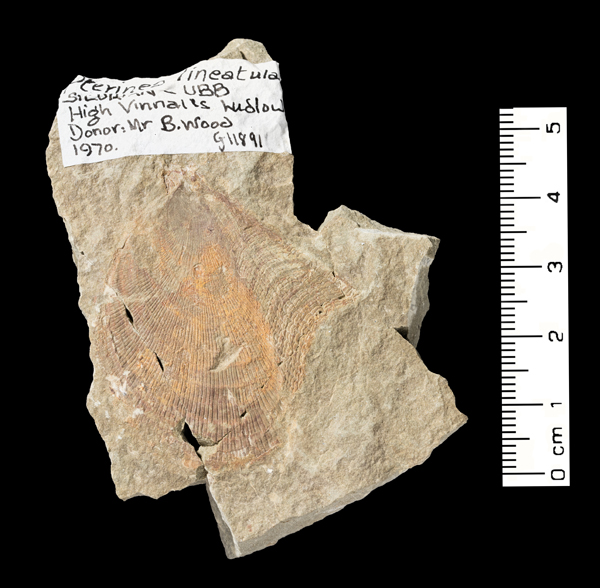 Pterinea lineatula
SILURIAN < UBB
High Vinnalls Ludlow
Donor: Mr B. Wood
1970. G11891
5
4
3
2
1
0 cm